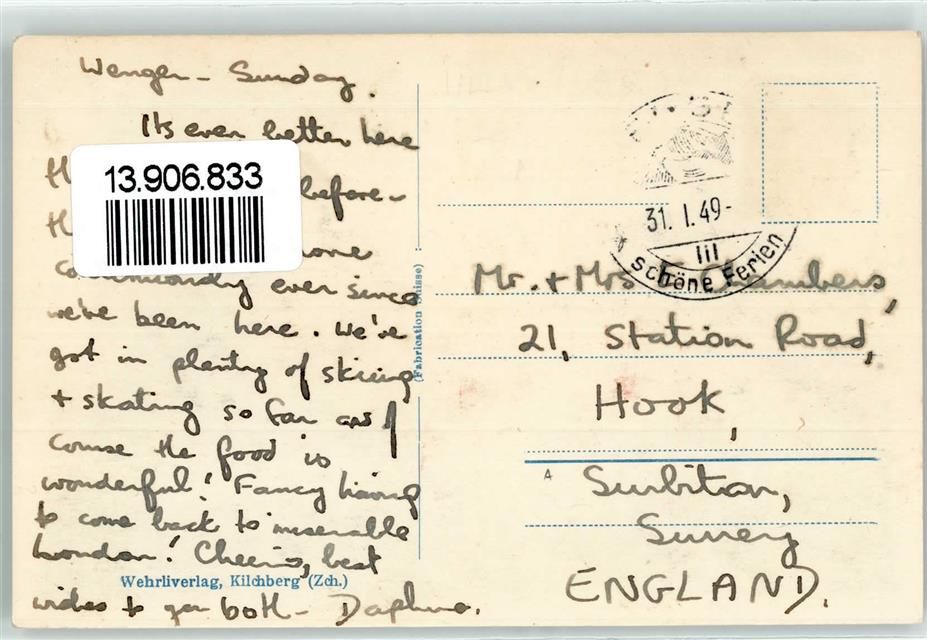 Wengen - Sunday.
Its even better here
before -
continuously ever since
we've been here. We've
got in plenty of skiing
+ skating so far and of
course the food is
wonderful! Fancy having
to come back to miserable
London! Cheerio, best
wishes to you both - Daphne.
Wehrliverlag, Kilchberg (Zch.)
13.906.833
(Fabrication Suisse)
31. I. 49-
schöne Ferien
Mr. + Mrs Chambers,
21, Station Road,
Hook,
Surbiton,
Surrey
ENGLAND.
A